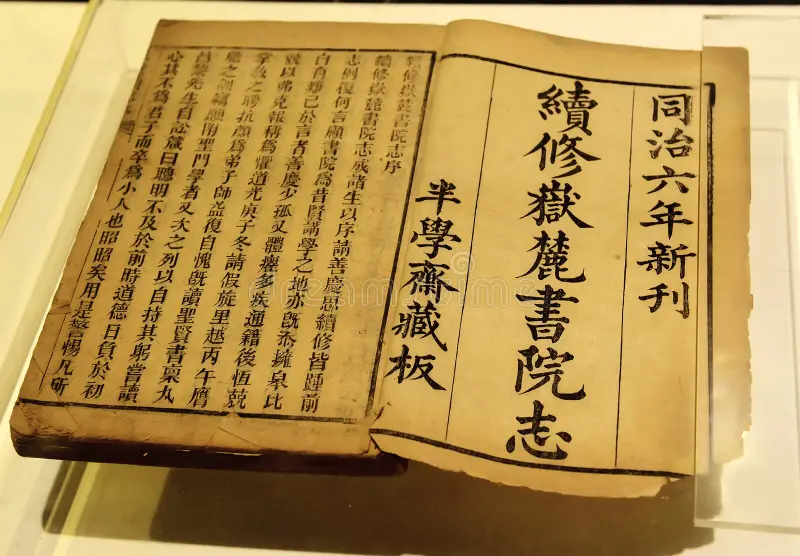 同治六年新刊
續修嶽麓書院志
半學齋藏板
續修嶽麓書院志序
續修嶽麓書院志成諸生以序請善慶思續修皆踵前
志例復何言顧書院爲昔賢講學之地亦旣忝擁皋比
自有難已於言者善慶少孤又體癯多疾通籍後恆兢
兢以弗克報稱爲懼道光庚子冬請假旋里越丙午膺
掌教之聘抗顏爲弟子師益復自愧旣讀聖賢書稟丸
膽之訓竊願附聖門學者又次之列以自持其躬嘗讀
昌黎先生自訟箴曰聰明不及於前時道德日負於初
心其不爲君子而卒爲小人也昭昭矣用是警惕凡所
dreamstime.com